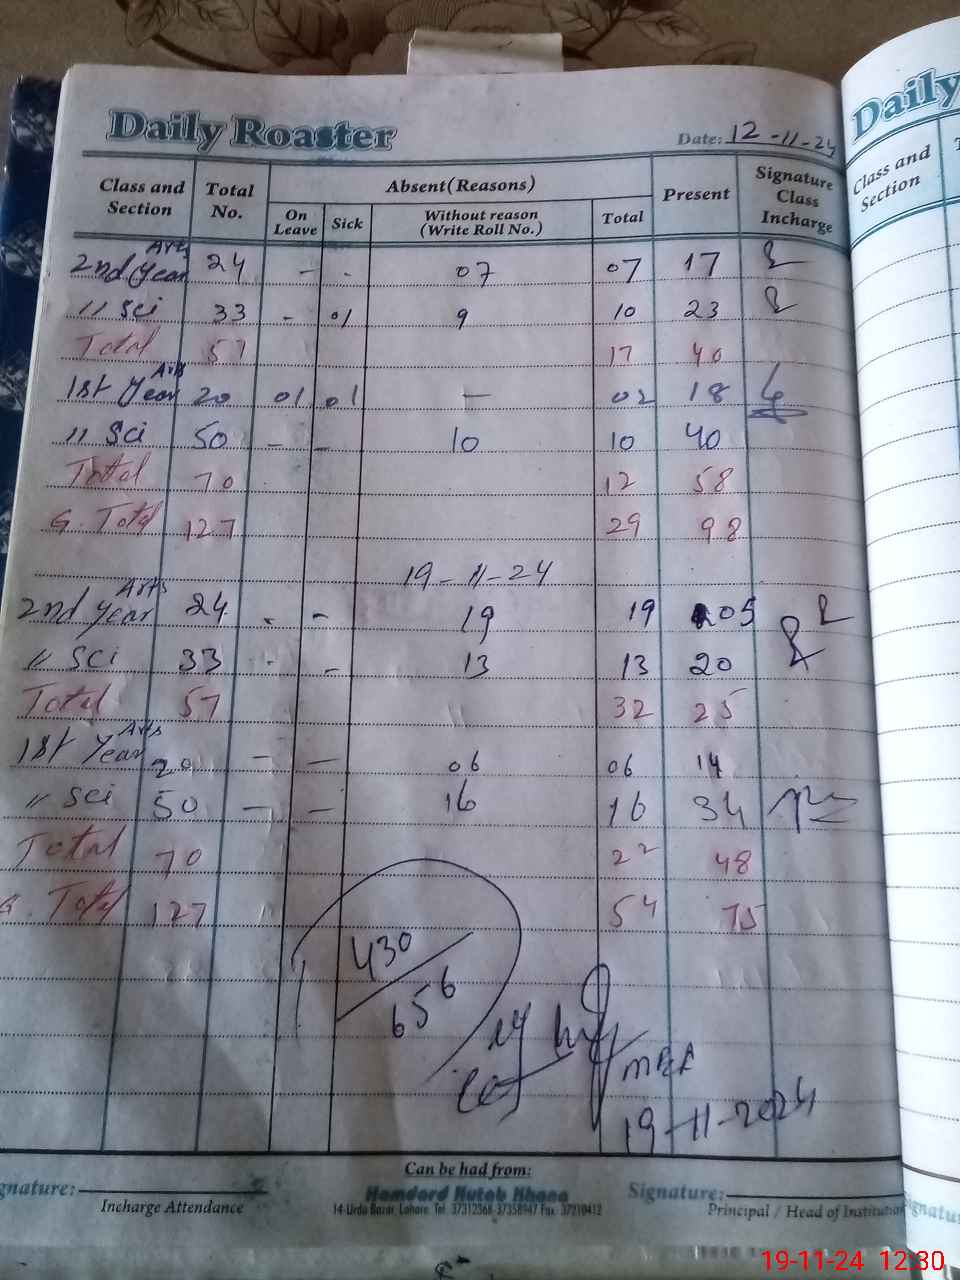 Daily Roaster
Date: 12-11-24
Class and Section Total No. Absent(Reasons) Present Signature Class Incharge
On Leave Sick Without reason (Write Roll No.) Total
2nd Year Arts 24 - - 07 07 17
" Sci 33 - 01 9 10 23
Total 57 17 40
1st Year Arts 20 01 01 - 02 18
" Sci 50 - - 10 10 40
Total 70 12 58
G. Total 127 29 98
19-11-24
2nd year Arts 24 - - 19 19 05
" Sci 33 - - 13 13 20
Total 57 32 25
1st Year Arts 20 - - 06 06 14
" Sci 50 - - 16 16 34
Total 70 22 48
G. Total 127 54 75
430
656
MEA
19-11-2024
Can be had from:
Hamdard Kutab Khana
14-Urdu Bazar, Lahore. Tel: 37312368-37358947 Fax: 37210412
gnature:
Incharge Attendance
Signature:
Principal / Head of Institution
Daily
Class and Section
ignatu
19-11-24 12:30